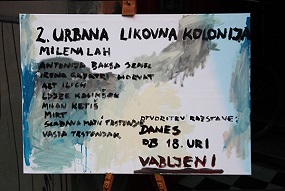 2. URBANA LIKOVNA KOLONIJA
MILENA LAH
ANTONIJA BAKSA SRNEL
IRENA GAJATRI HORVAT
ART ILICH
LOJZE KALINŠEK
MILAN KETIŠ
MIRT
SLAĐANA MATIĆ TRSTENJAK
VASJA TRSTENJAK
OTVORITEV RAZSTAVE:
DANES
OB 18. URI
VABLJENI